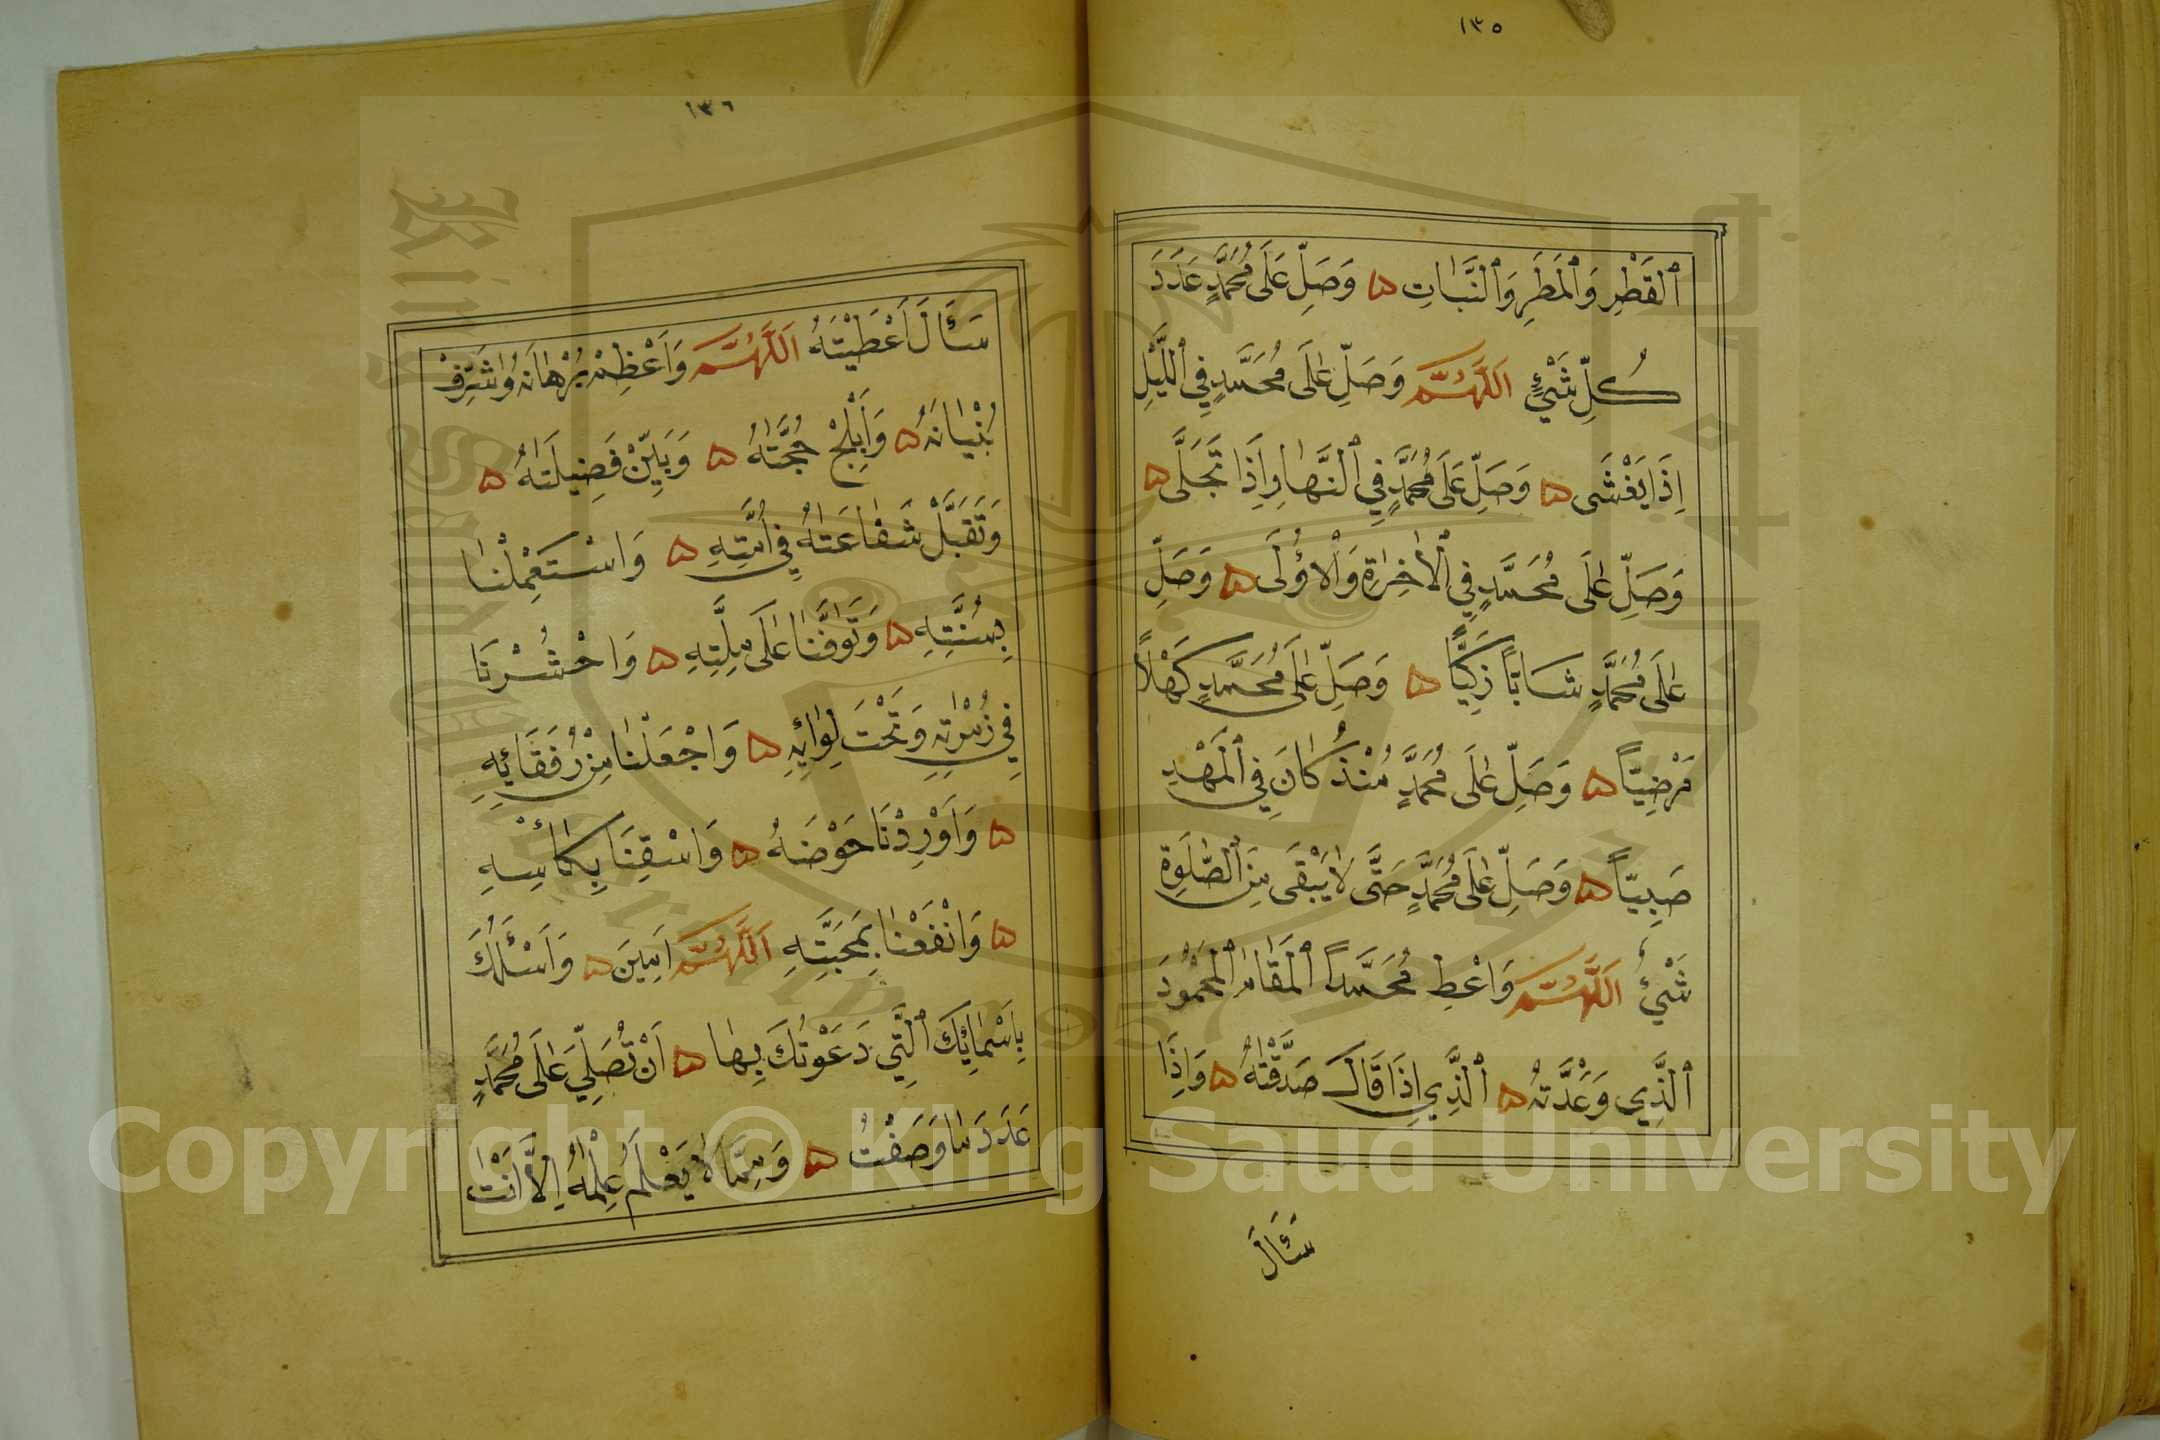 ١٣٥
ٱلْقَطْرِ وَٱلْمَطَرِ وَٱلنَّبَاتِ ۞ وَصَلِّ عَلَى مُحَمَّدٍ عَدَدَ
كُلِّ شَيْءٍ اَللَّهُمَّ وَصَلِّ عَلَى مُحَمَّدٍ فِي ٱللَّيْلِ
اِذَا يَغْشَى ۞ وَصَلِّ عَلَى مُحَمَّدٍ فِي ٱلنَّهَارِ اِذَا تَجَلَّى ۞
وَصَلِّ عَلَى مُحَمَّدٍ فِي ٱلْاٰخِرَةِ وَالْاُوْلَى ۞ وَصَلِّ
عَلَى مُحَمَّدٍ شَابًّا زَكِيًّا ۞ وَصَلِّ عَلَى مُحَمَّدٍ كَهْلًا
مَرْضِيًّا ۞ وَصَلِّ عَلَى مُحَمَّدٍ مُنْذُ كَانَ فِي ٱلْمَهْدِ
صَبِيًّا ۞ وَصَلِّ عَلَى مُحَمَّدٍ حَتَّى لَا يَبْقَى مِنَ ٱلصَّلٰوةِ
شَيْءٌ اَللَّهُمَّ وَاعْطِ مُحَمَّداً ٱلْمَقَامَ ٱلْمَحْمُودَ
ٱلَّذِي وَعَدْتَهُ ۞ ٱلَّذِي اِذَا قَالَ صَدَّقْتَهُ ۞ وَاِذَا
سَئَالَ
١٣٦
سَئَالَ اَعْطَيْتَهُ اَللَّهُمَّ وَاَعْظِمْ بُرْهَانَهُ وَشَرِّفْ
بُنْيَانَهُ ۞ وَاَبْلِجْ حُجَّتَهُ ۞ وَبَيِّنْ فَضِيلَتَهُ ۞
وَتَقَبَّلْ شَفَاعَتَهُ فِي اُمَّتِهِ ۞ وَاسْتَعْمِلْنَا
بِسُنَّتِهِ ۞ وَتَوَفَّنَا عَلَى مِلَّتِهِ ۞ وَاحْشُرْنَا
فِي زُمْرَتِهِ وَتَحْتَ لِوَائِهِ ۞ وَاجْعَلْنَا مِنْ رُفَقَائِهِ
۞ وَاَوْرِدْنَا حَوْضَهُ ۞ وَاسْقِنَا بِكَأْسِهِ
۞ وَانْفَعْنَا بِمَحَبَّتِهِ اَللَّهُمَّ اَمِينَ ۞ وَاَسْئَلُكَ
بِاَسْمَائِكَ ٱلَّتِي دَعَوْتُكَ بِهَا ۞ اَنْ تُصَلِّيَ عَلَى مُحَمَّدٍ
عَدَدَ مَا وَصَفْتُ ۞ وَمِمَّا لَا يَعْلَمُ عِلْمَهُ اِلَّا اَنْتَ
Copyright © King Saud University